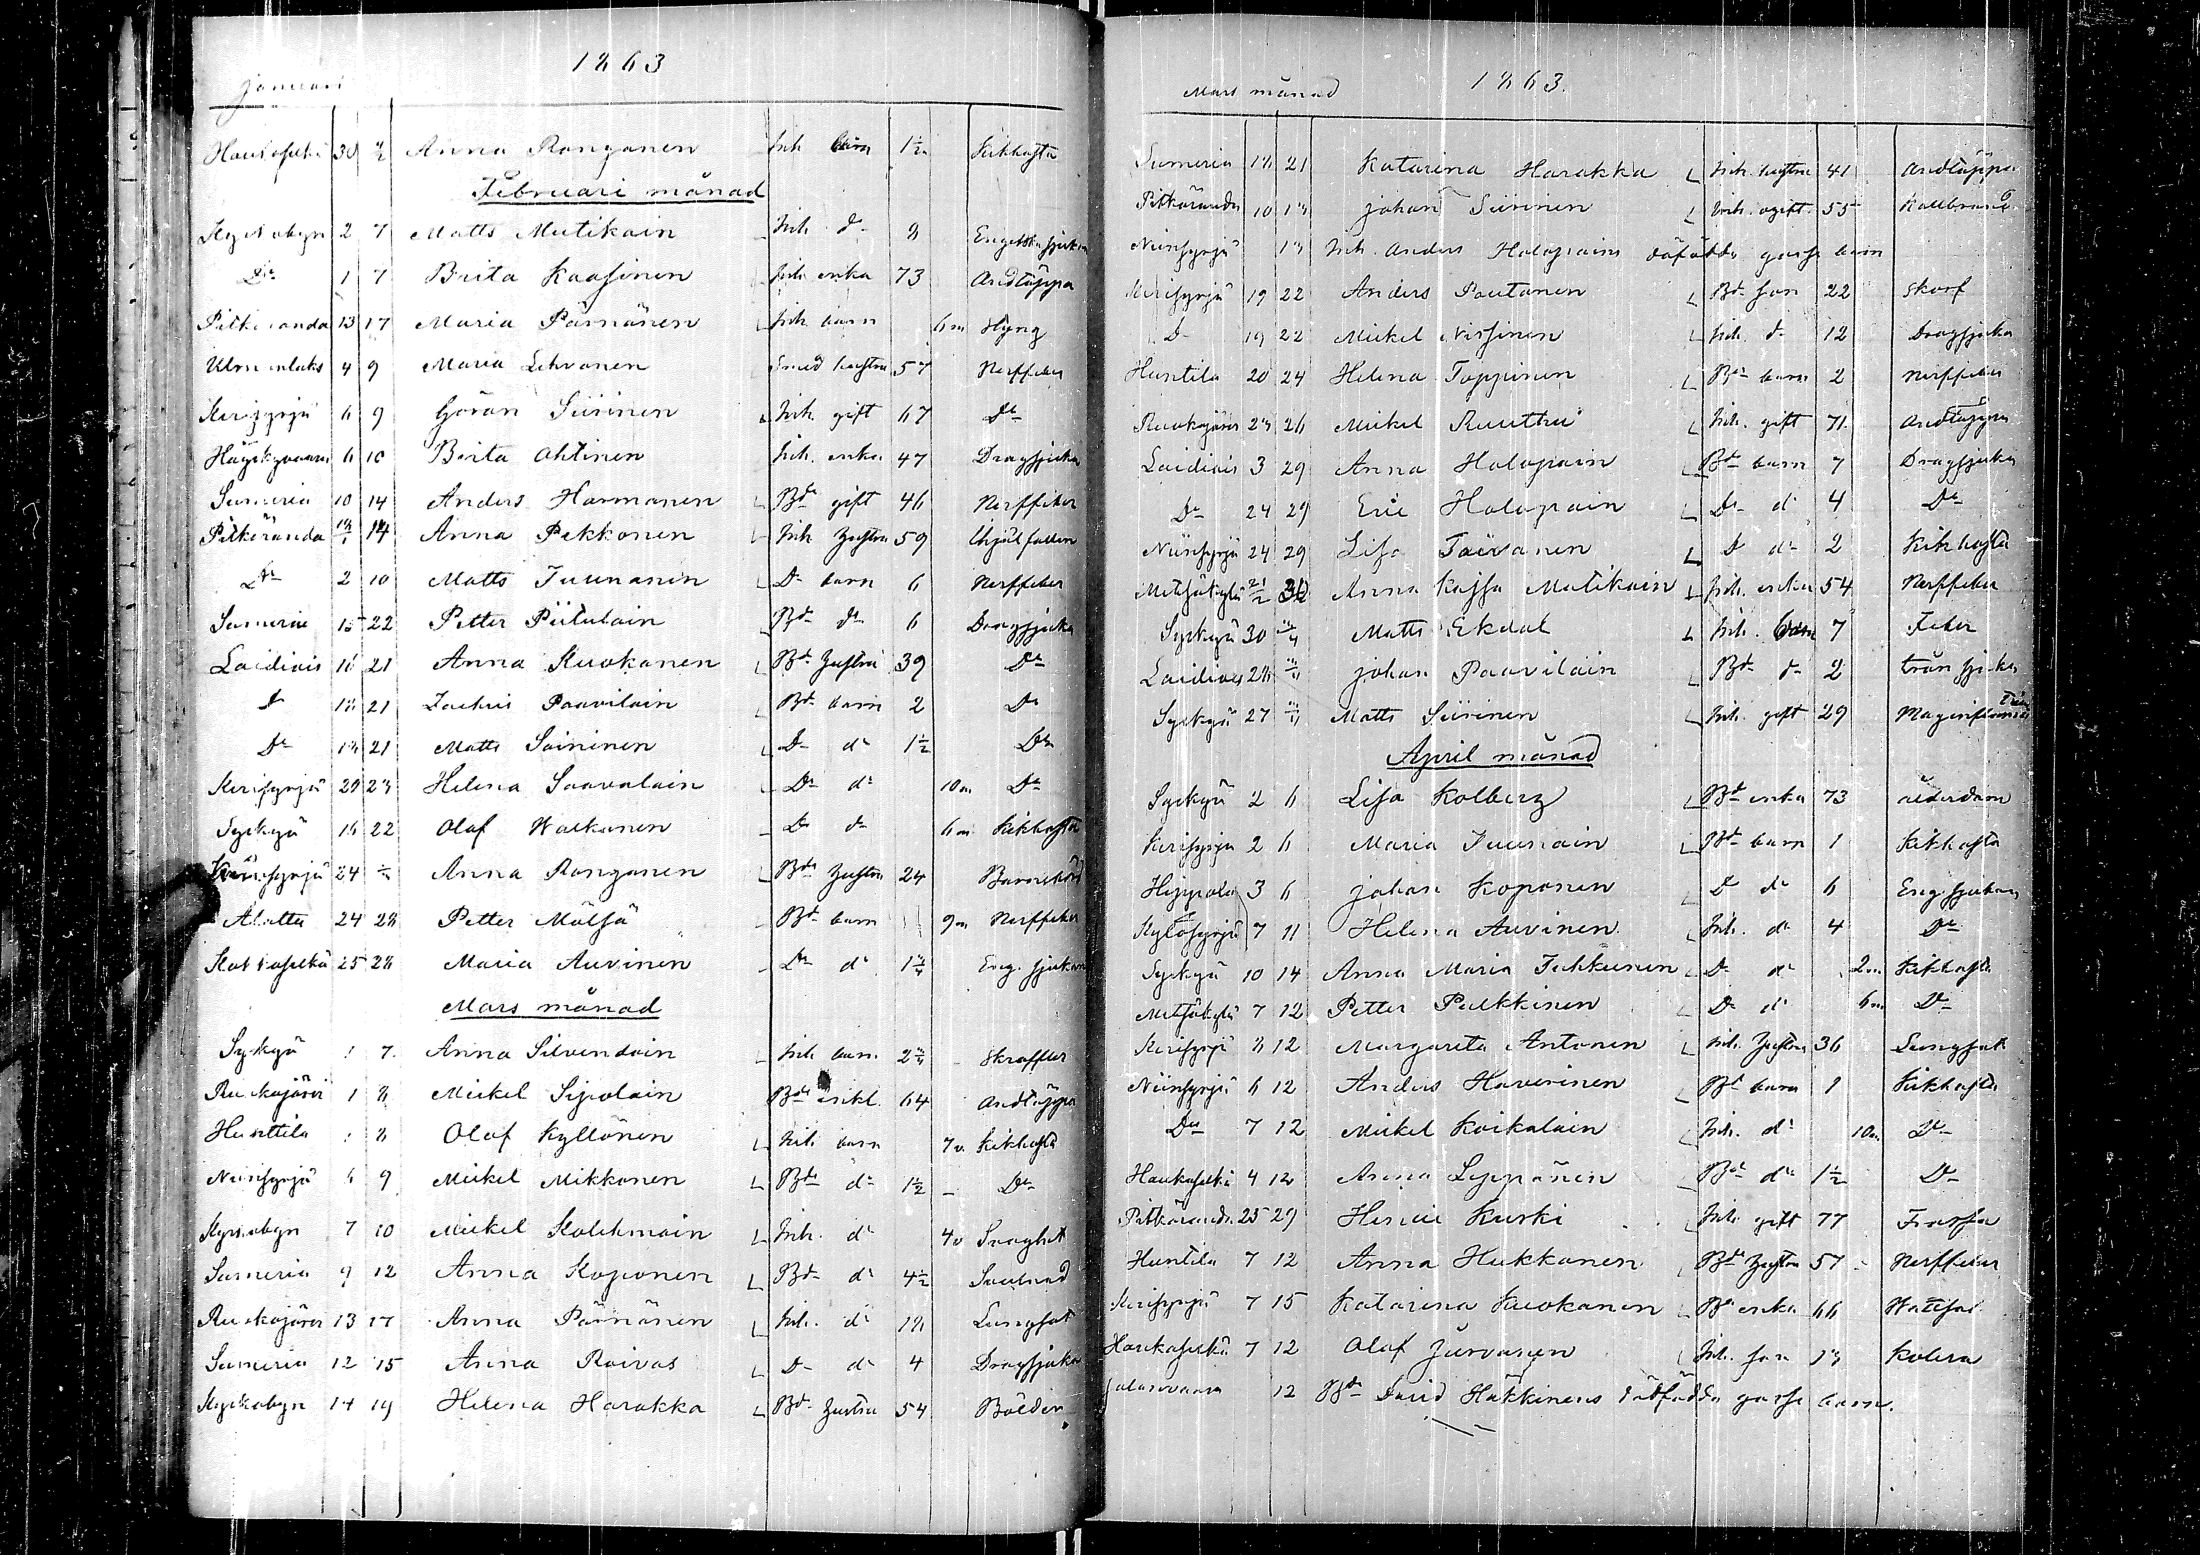 1863
Januari
Haukaselkä 30 4/2 Anna Ronganen Inh barn 1 1/2 Kikhosta
Februari månad
Kyrkobyn 2 7 Matts Mutikain Inh d:o 8 Engelska sjukan
D:o 1 7 Brita Kaasinen Inh enka 73 Andtäppa
Pitkäranda 13 17 Maria Pärnänen Inh barn 6 m Slyng
Uksunlaks 4 9 Maria Lehvonen Smed hustru 57 Nerffeber
Kerisyrjä 6 9 Göran Siirinen Inh gift 67 D:o
6 10 Brita Ahtinen Inh. enka 47 Dragsjuka
Sumeria 10 14 Anders Harmanen Bd gift 46 Nerffeber
Pitkäranda 14 Anna Pekkonen Inh hustru 59 Ihjälfallen
D:o 2 10 Matts Juunanen D:o barn 6 Nerffeber
Sumeria 15 22 Petter Piitulain Bd d:o 6 Dragsjuka
Laidiais 16 21 Anna Kuokanen Bd hustru 39 D:o
D:o 18 21 Zachris Paavilain Bd barn 2 D:o
D:o 18 21 Matts Soininen D:o d:o 1 1/2 D:o
Kerisyrjä 20 23 Helena Saavalain D:o d:o 10 m D:o
Syskyä 16 22 Olof Walkonen D:o d:o 6 m Kikhosta
24 Anna Ronganen Bd hustru 24 Barnsbörd
Alattu 24 28 Petter Mälsä Bd barn 9 m Nerffeber
Kotkaselkä 25 28 Maria Auvinen D:o d:o 1 3/4 Eng. sjukan
Mars månad
Syskyä 1 7 Anna Silvendoin Inh barn 2 3/4 Skroffler
Ruokojärvi 1 8 Mickel Sipolain Bd enkl. 64 Andtäppa
Hunttila 8 Olof Kyllönen Inh barn 7 v. Kikhosta
Niinisyrjä 6 9 Mickel Mikkonen Bd d:o 1 1/2 D:o
Kyrkobyn 7 10 Mickel Kolehmain Inh. d:o 4 v Svaghet
Sumeria 9 12 Anna Koponen Bd d:o 4 1/2
Ruokojärvi 13 17 Anna Pärnänen Inh. d:o 18 Lungsot
Sumeria 12 15 Anna Roivas D:o d:o 4 Dragsjuka
Kyrkobyn 14 19 Helena Harakka Bd hustru 54 Bölder
Mars månad
1863.
Sumeria 18 21 Katarina Harakka Inh. hustru 41 Andtäppa
Pitkäranda 10 13 Johan Siirinen Inh. ogift 55 Kallbrand
Niinisyrjä 13 Inh. Anders Holopains dödfödda gosse barn
Kerisyrjä 19 22 Anders Pautanen Bd son 22 Skorf
D:o 19 22 Mickel Nissinen Inh. d:o 12 Dragsjuka
Huntila 20 24 Helena Toppinen Bd barn 2 Nerffeber
Ruokojärvi 23 26 Mickel Ruuttu Inh. gift 71 Andtäppa
Laidiais 3 29 Anna Holopain Bd barn 7 Dragsjuka
D:o 24 29 Eric Holopain D:o d:o 4 D:o
Niinisyrjä 24 29 Lisa Taivanen D:o d:o 2 Kikhosta
Metsäkylä 21/2 Anna Kajsa Matikain Inh. enka 54 Nerffeber
Syskyä 30 Matts Ekdal Inh. barn 7 Feber
Laidiais 28 Johan Paavilain Bd d:o 2 trånsjuka
Syskyä 27 Matts Siirinen Inh. gift 29
April månad
Syskyä 2 6 Lisa Kolberg Bd enka 73 ålderdom
Kerisyrjä 2 6 Maria Juunain Bd barn 1 Kikhosta
Hippola 3 6 Johan Koponen D:o d:o 6 Eng. sjukan
7 11 Helena Auvinen Inh. d:o 4 D:o
Syskyä 10 14 Anna Maria Juhkeinen D:o d:o 2 m Kikhosta
Metsäkylä 7 12 Petter Pulkkinen D:o d:o 6 m D:o
Kerisyrjä 8 12 Margareta Antonen Inh. hustru 36 Lungsot
Niinisyrjä 6 12 Anders Haverinen Bd barn 1 Kikhosta
D:o 7 12 Mickel Koikalain Inh. d:o 10 m D:o
Haukaselkä 4 12 Anna Leppänen Bd d:o 1 1/2 D:o
Pitkäranda 25 29 Henric Kurki Inh. gift 77 Frossa
Huntila 7 12 Anna Hukkanen Bd hustru 57 Nerffeber
Kerisyrjä 7 15 Katarina Kuokanen Bd enka 66 Wattsot
Haukaselkä 7 12 Olof Jurvanen Inh. son 13 Kolera
Jalasvaara 12 Bd David Häkkinens dödfödda gosse barn.